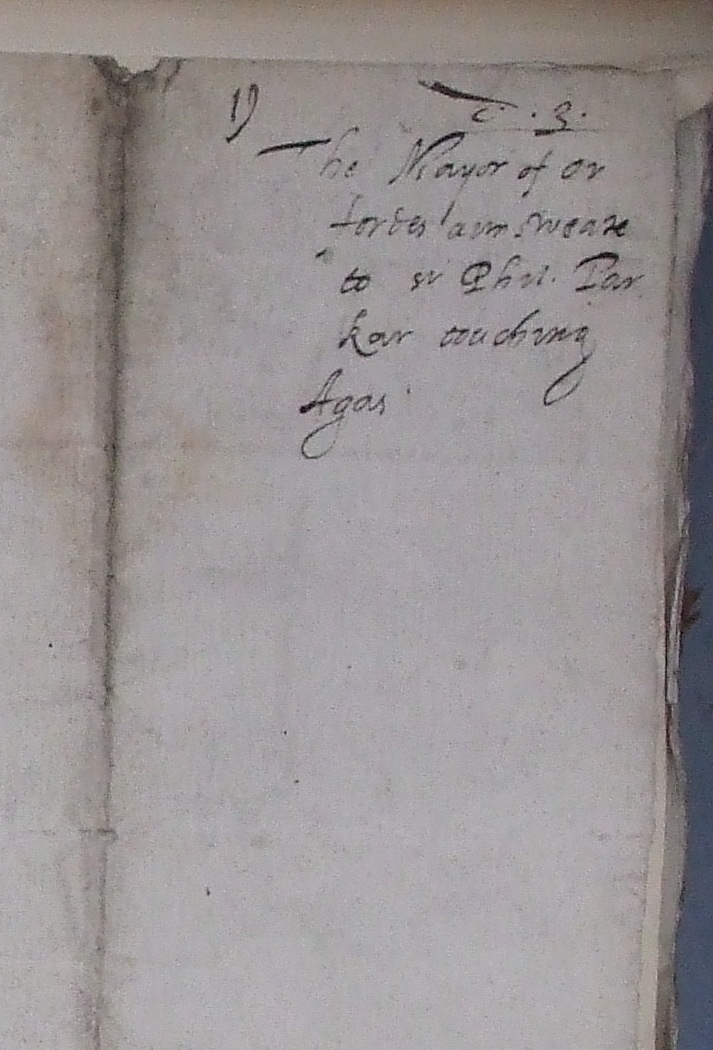 1)
C. .3.
The Mayor of Or
fordes aunsweare
to sr Phil. Par
kar touching
Agas